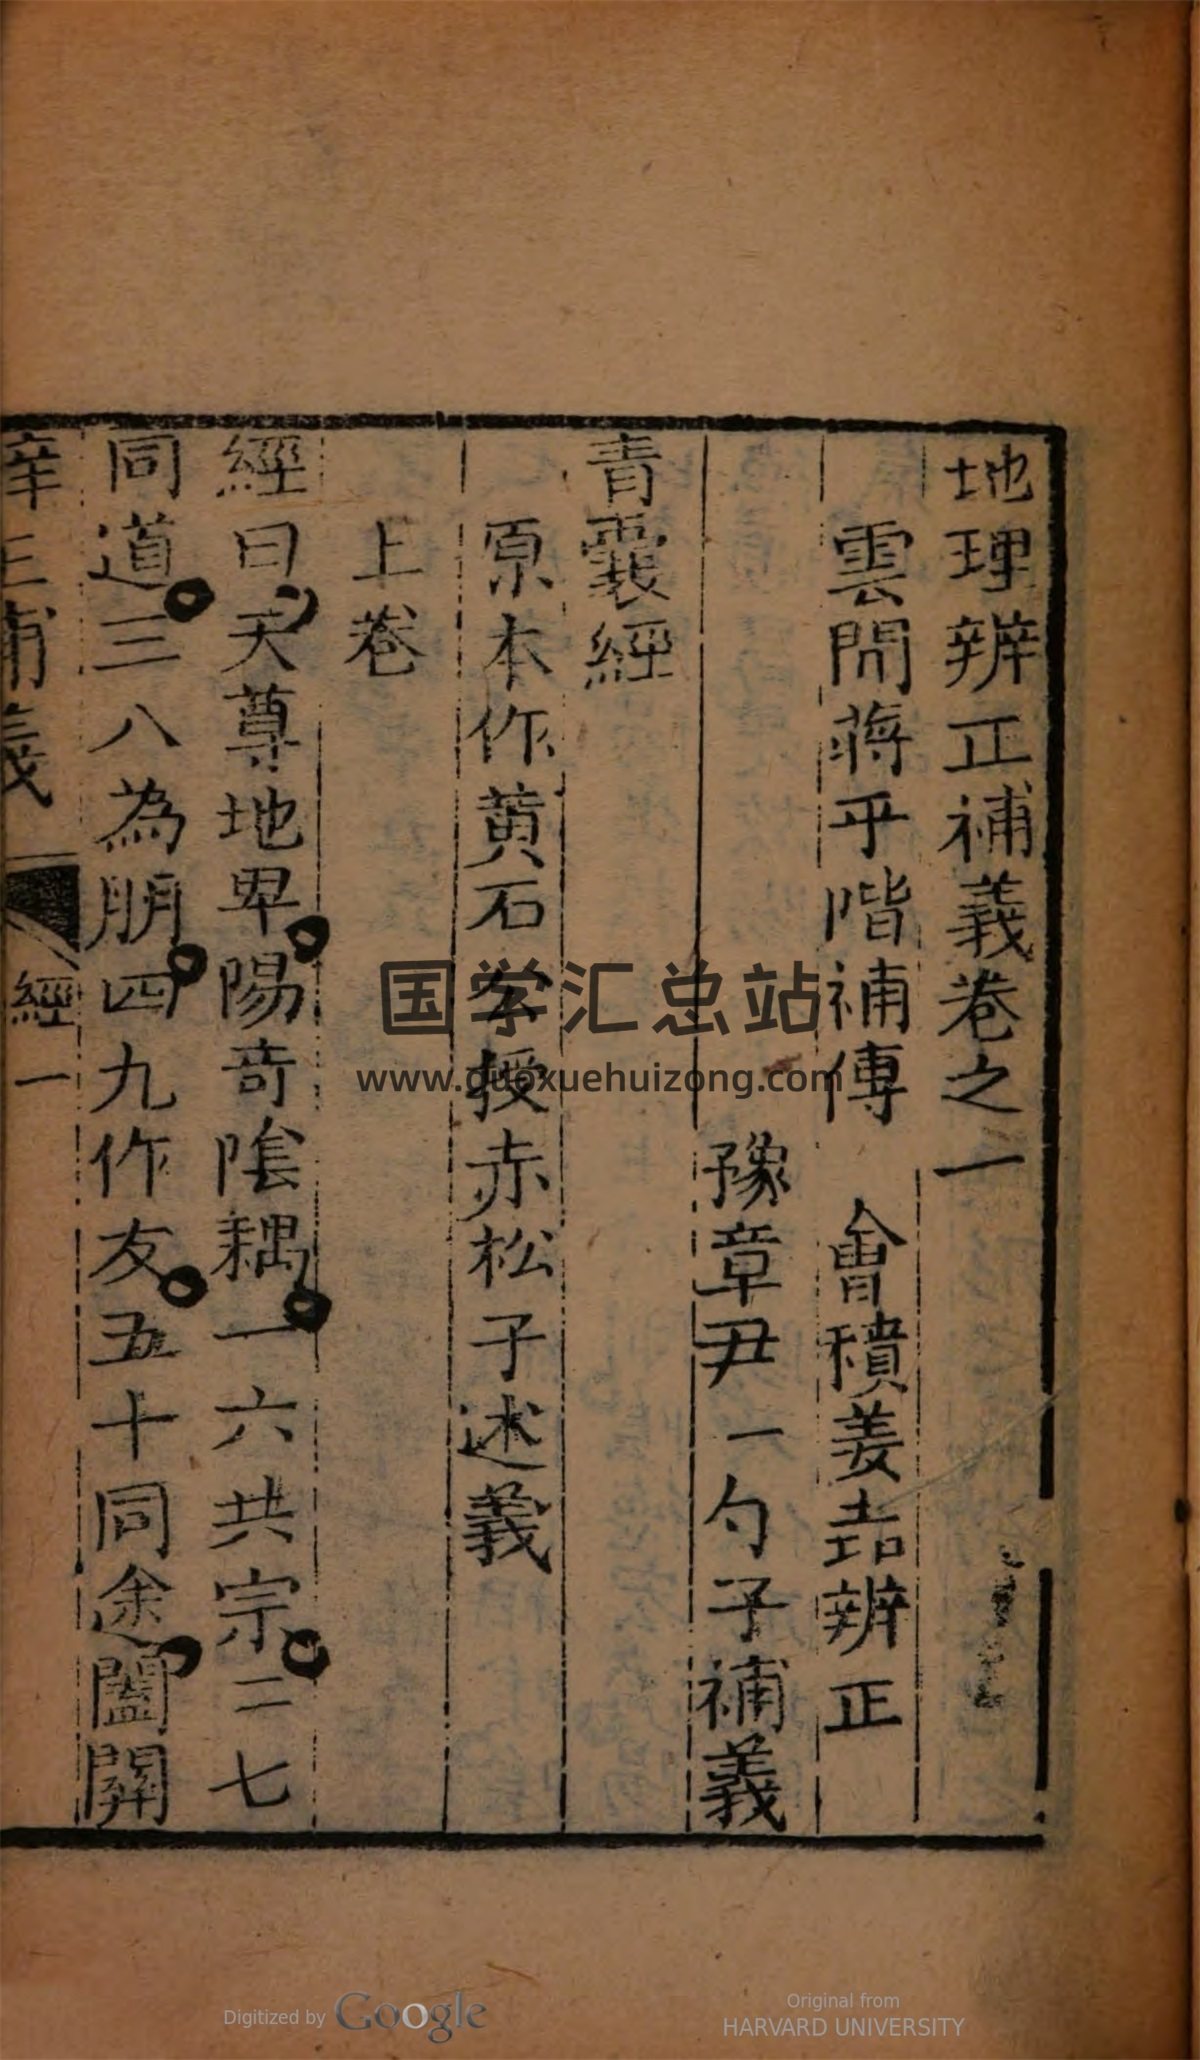 地理辨正補義卷之一
雲間蔣平階補傳　會稽姜垚辨正
豫章尹一勺子補義
青囊經
原本作黃石公授赤松子述義
上卷
經曰天尊地卑陽奇陰耦一六共宗二七
同道三八為朋四九作友五十同途闔闢
辛正補義　經　一
国学汇总站
www.guoxuehuizong.com
Digitized by Google
Original from
HARVARD UNIVERSITY